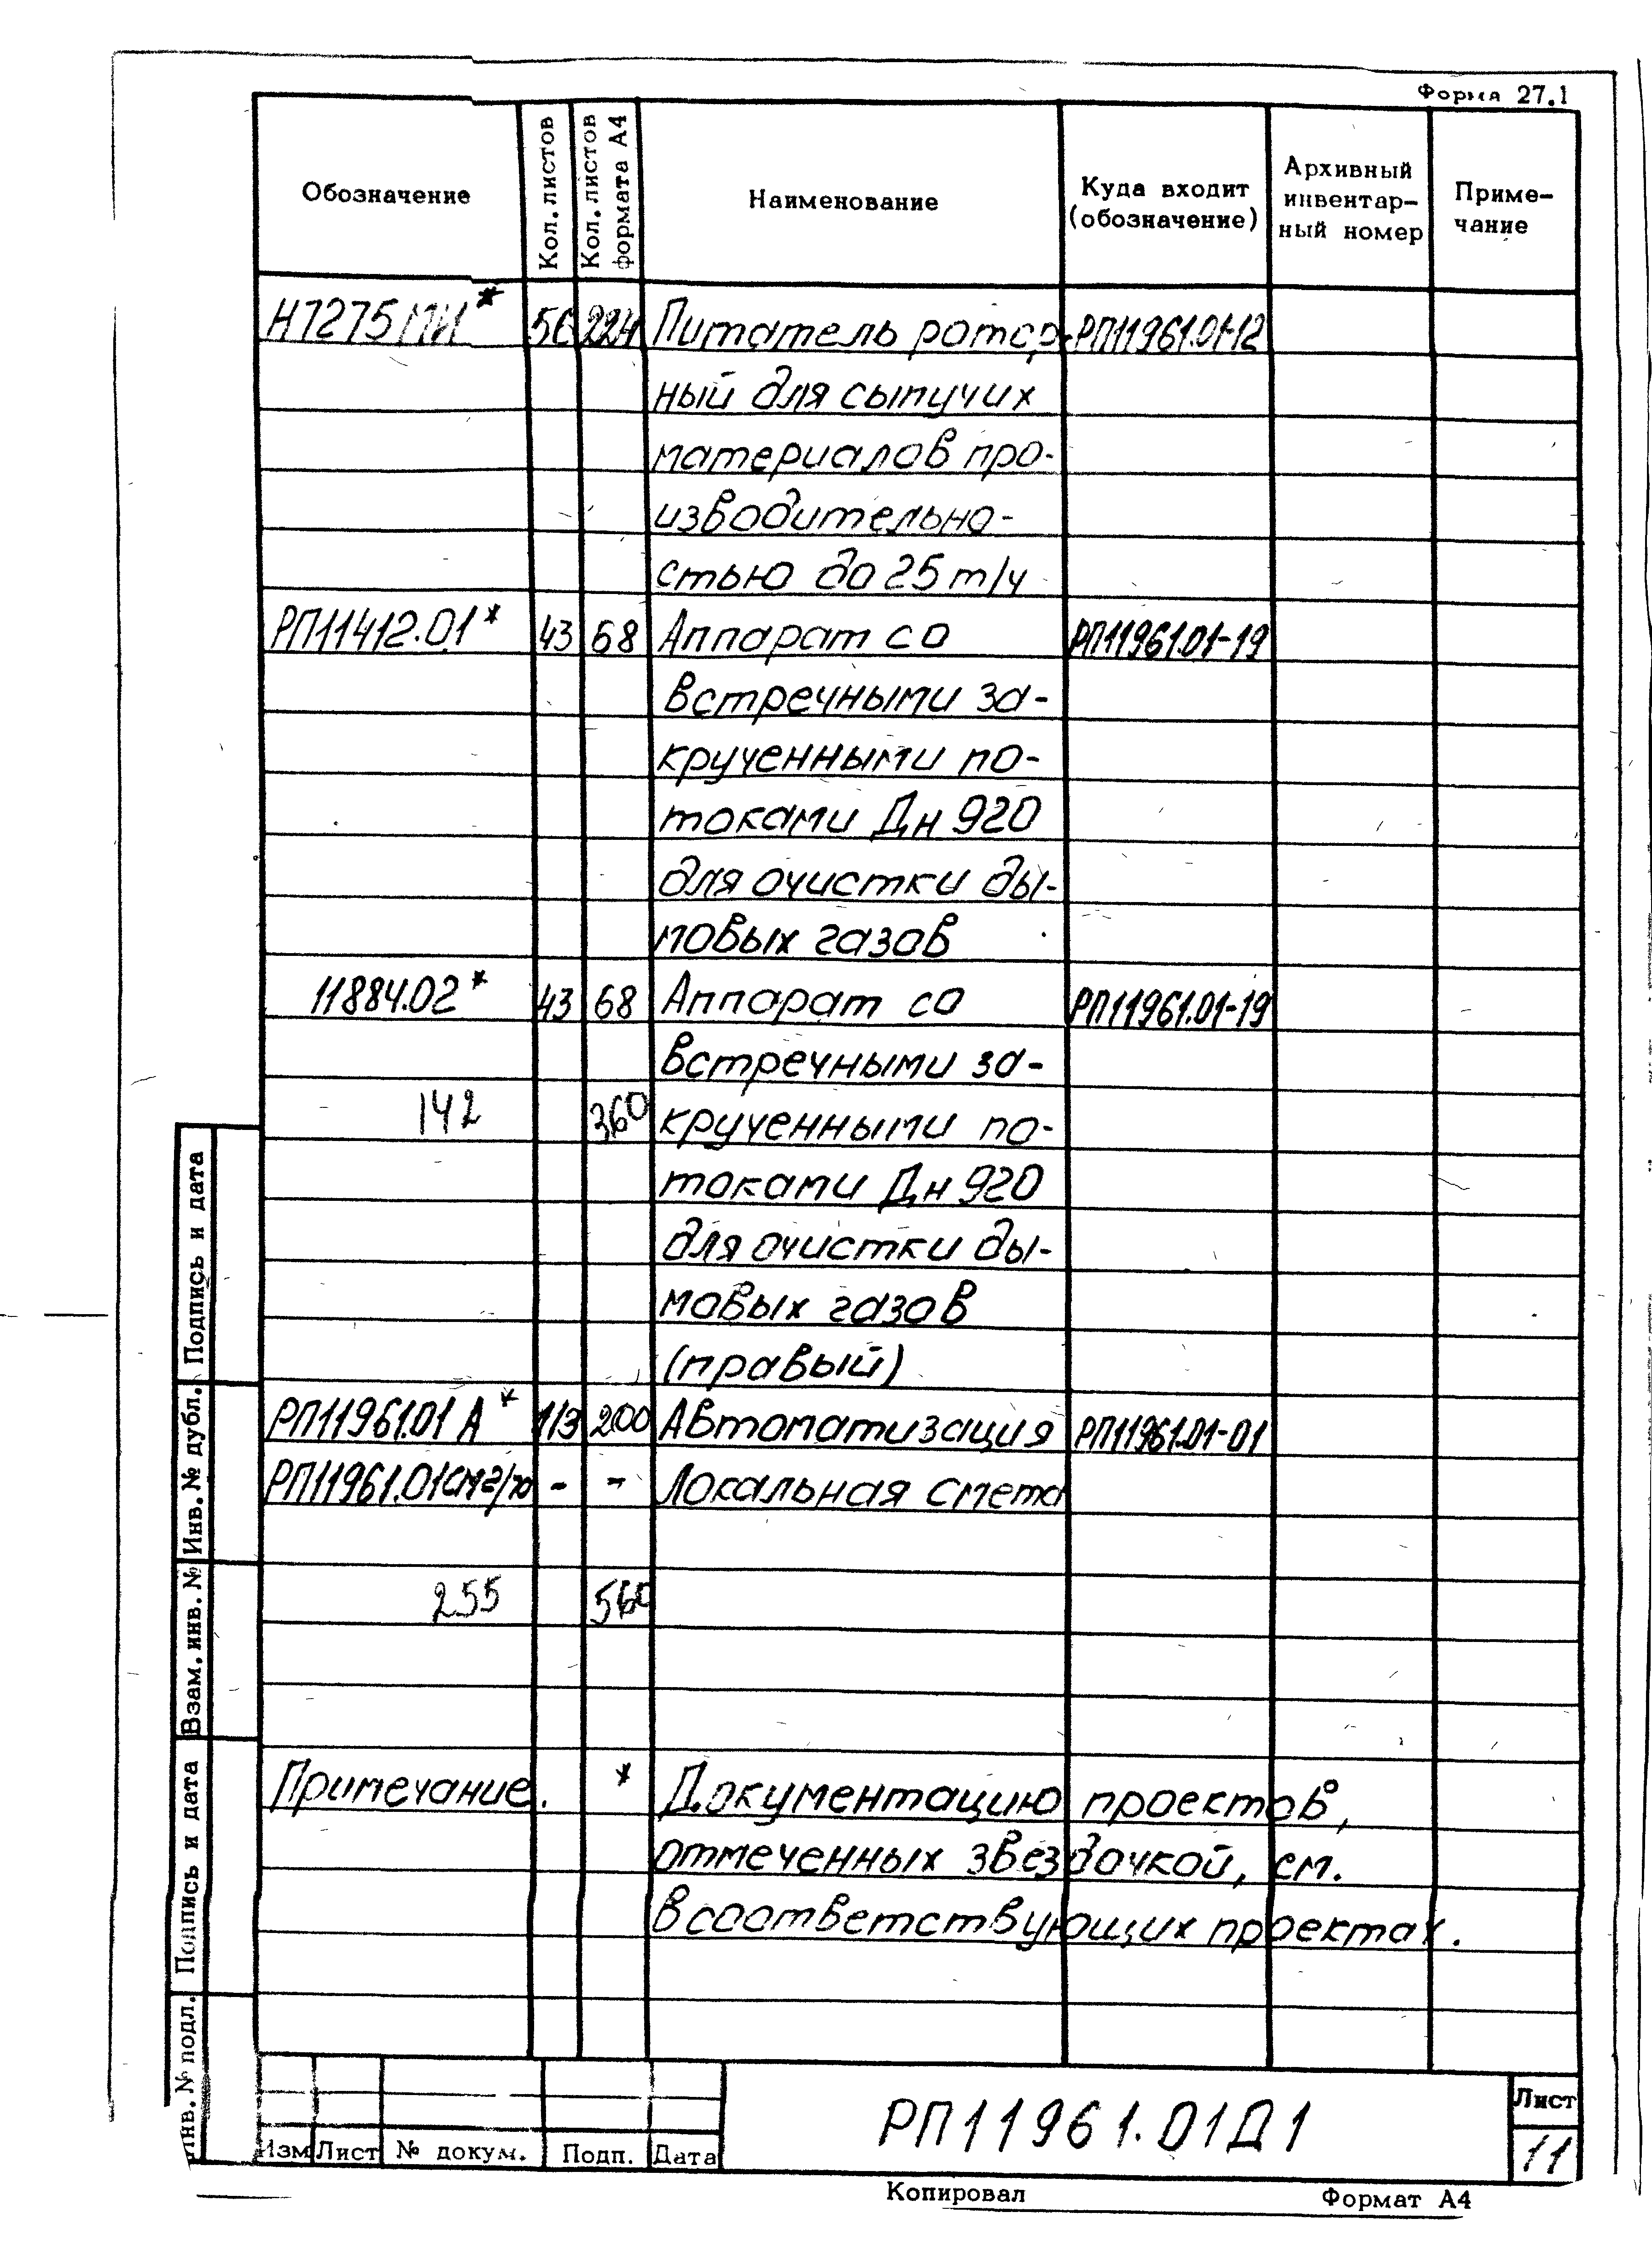 Форма 27.1
Обозначение Кол. листов Кол. листов формата А4 Наименование Куда входит (обозначение) Архивный инвентар-ный номер Приме-чание
Н7275МИ* 56 224 Питатель ротор- РП11961.01-12
ный для сыпучих
материалов про-
изводительно-
стью до 25 т/ч
РП11412.01* 43 68 Аппарат со РП11961.01-19
встречными за-
крученными по-
токами Дн 920
для очистки ды-
мовых газов
11884.02* 43 68 Аппарат со РП11961.01-19
встречными за-
142 360 крученными по-
токами Дн 920
для очистки ды-
мовых газов
(правый)
РП11961.01 А* 113 200 Автоматизация РП11961.01-01
РП11961.01 - - Локальная смета
255 560
Примечание. * Документацию проектов,
отмеченных звездочкой, см.
в соответствующих проектах.
Подпись и дата
Инв. № дубл.
Взам. инв. №
Подпись и дата
Инв. № подл.
Изм Лист № докум. Подп. Дата
РП11961.01Д1
Лист
11
Копировал Формат А4